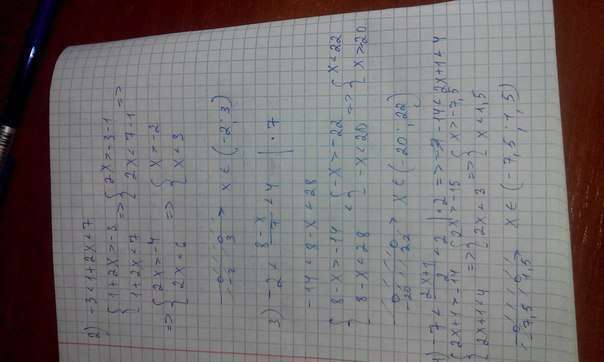 2) -3<1+2x<7
{ 1+2x>-3 => { 2x>-3-1
{ 1+2x<7 { 2x<7-1 =>
=> { 2x>-4 => { x>-2
{ 2x<6 { x<3
-2 3 => x∈(-2;3)
3) -2< 8-x/7 <4 | ·7
-14<8-x<28
{ 8-x>-14 { -x>-22 => { x<22
{ 8-x<28 { -x<20 { x>20
-20 22 => x∈(-20;22)
) -7< 2x+1/2 <2 | ·2 => -14<2x+1<4
{ 2x+1>-14 => { 2x>-15 => { x>-7,5
{ 2x+1<4 { 2x<3 { x<1,5
-7,5 1,5 => x∈(-7,5;1,5)